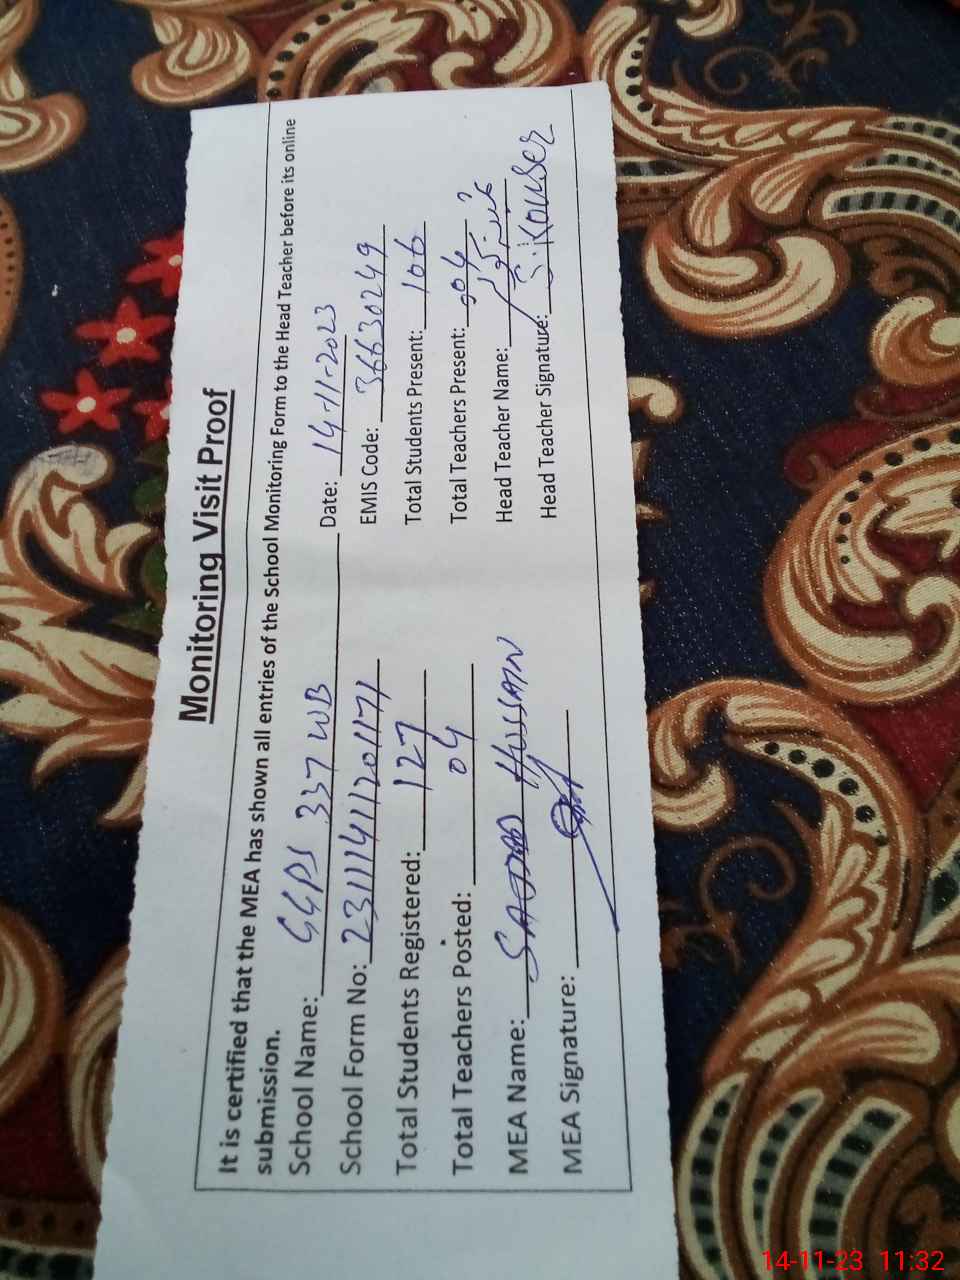 Monitoring Visit Proof
It is certified that the MEA has shown all entries of the School Monitoring Form to the Head Teacher before its online
submission.
School Name: GGPS 337 WB Date: 14-11-2023
School Form No: 23111411201171 EMIS Code: 36630249
Total Students Registered: 127 Total Students Present: 106
Total Teachers Posted: 04 Total Teachers Present: 04
MEA Name: SAJJAD HUSSAIN Head Teacher Name:
MEA Signature: Head Teacher Signature: S. Kouser
14-11-23 11:32